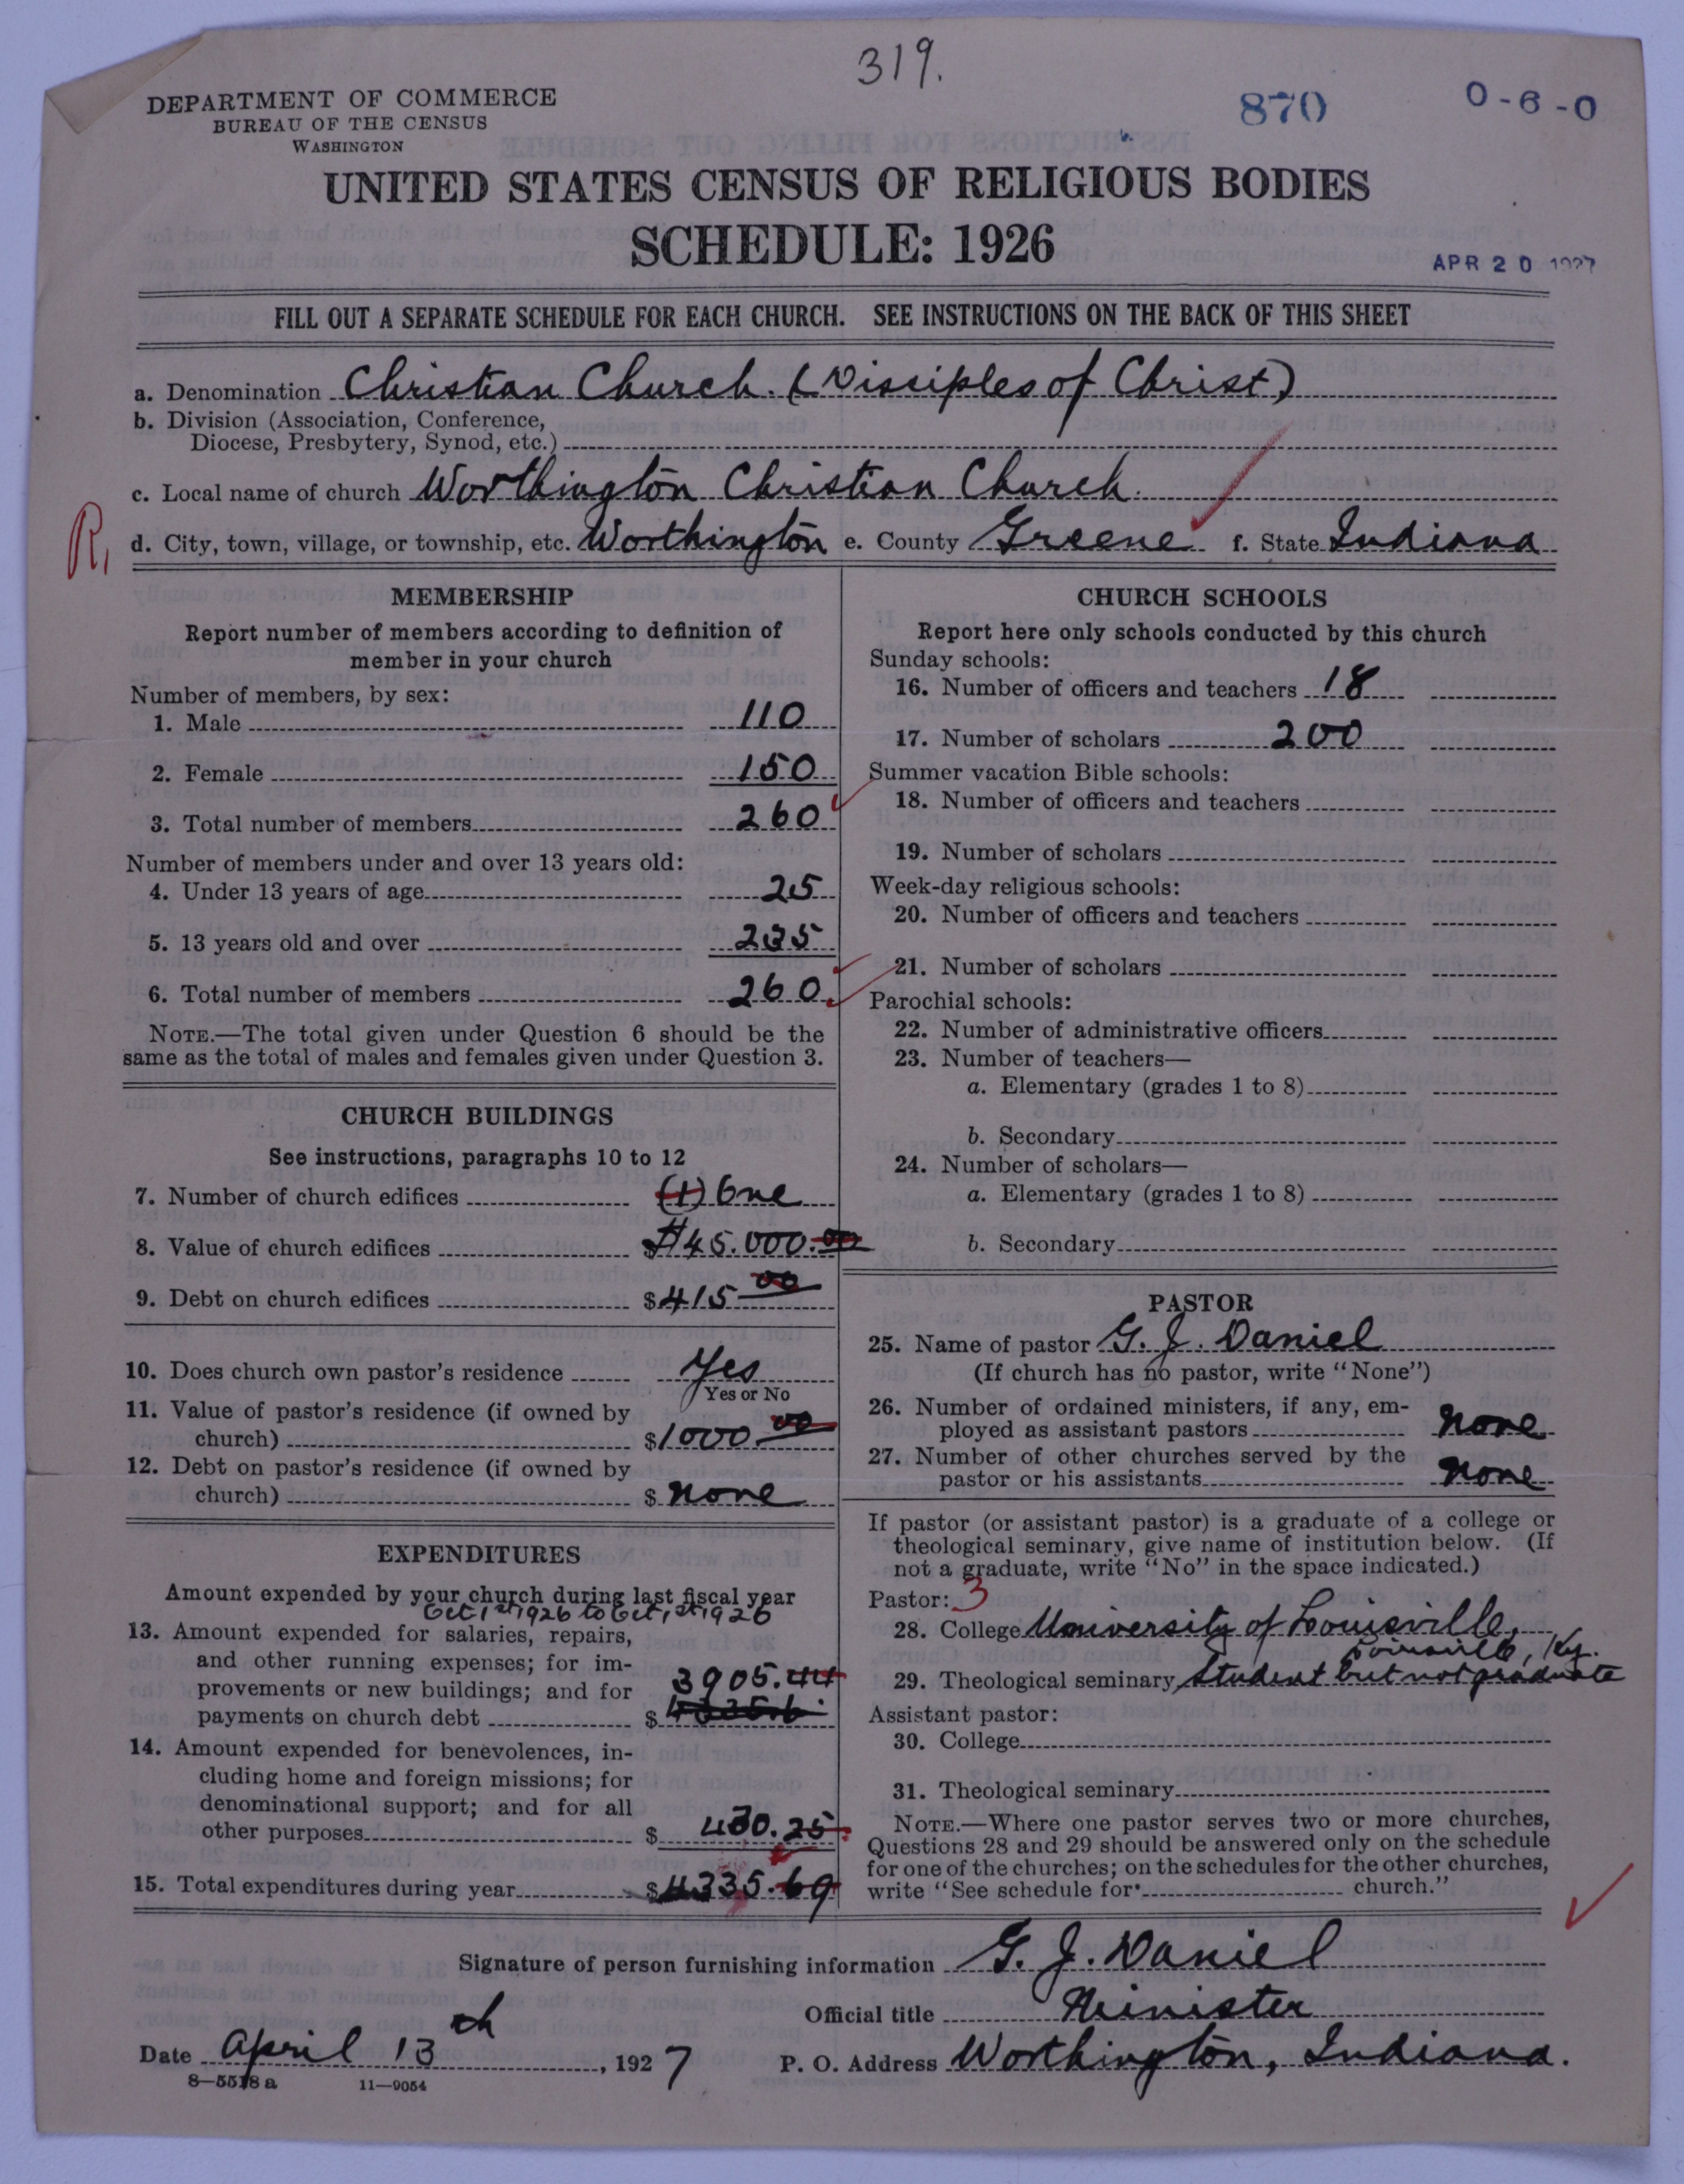 319.
870
0-6-0
DEPARTMENT OF COMMERCE
BUREAU OF THE CENSUS
WASHINGTON
UNITED STATES CENSUS OF RELIGIOUS BODIES
SCHEDULE: 1926
APR 20 1927
FILL OUT A SEPARATE SCHEDULE FOR EACH CHURCH. SEE INSTRUCTIONS ON THE BACK OF THIS SHEET
a. Denomination Christian Church. (Disciples of Christ)
b. Division (Association, Conference,
Diocese, Presbytery, Synod, etc.)
c. Local name of church Worthington Christian Church.
R,
d. City, town, village, or township, etc. Worthington e. County Greene f. State Indiana
MEMBERSHIP
Report number of members according to definition of
member in your church
Number of members, by sex:
1. Male 110
2. Female 150
3. Total number of members 260
Number of members under and over 13 years old:
4. Under 13 years of age 25
5. 13 years old and over 235
6. Total number of members 260
NOTE.—The total given under Question 6 should be the
same as the total of males and females given under Question 3.
CHURCH BUILDINGS
See instructions, paragraphs 10 to 12
7. Number of church edifices (1) One
8. Value of church edifices $45.000.00
9. Debt on church edifices $415 00
10. Does church own pastor's residence Yes
Yes or No
11. Value of pastor's residence (if owned by
church) $1000 00
12. Debt on pastor's residence (if owned by
church) $ none
EXPENDITURES
Amount expended by your church during last fiscal year
Oct 1st 1926 to Oct, 1st 1926
13. Amount expended for salaries, repairs,
and other running expenses; for im-
provements or new buildings; and for 3905.44
payments on church debt $
14. Amount expended for benevolences, in-
cluding home and foreign missions; for
denominational support; and for all
other purposes $ 430.25
15. Total expenditures during year $4335.69
CHURCH SCHOOLS
Report here only schools conducted by this church
Sunday schools:
16. Number of officers and teachers 18
17. Number of scholars 200
Summer vacation Bible schools:
18. Number of officers and teachers
19. Number of scholars
Week-day religious schools:
20. Number of officers and teachers
21. Number of scholars
Parochial schools:
22. Number of administrative officers
23. Number of teachers—
a. Elementary (grades 1 to 8)
b. Secondary
24. Number of scholars—
a. Elementary (grades 1 to 8)
b. Secondary
PASTOR
25. Name of pastor G. J. Daniel
(If church has no pastor, write "None")
26. Number of ordained ministers, if any, em-
ployed as assistant pastors none
27. Number of other churches served by the
pastor or his assistants none
If pastor (or assistant pastor) is a graduate of a college or
theological seminary, give name of institution below. (If
not a graduate, write "No" in the space indicated.)
Pastor: 3
28. College University of Louisville,
Louisville, Ky.
29. Theological seminary Student but not graduate
Assistant pastor:
30. College
31. Theological seminary
NOTE.—Where one pastor serves two or more churches,
Questions 28 and 29 should be answered only on the schedule
for one of the churches; on the schedules for the other churches,
write "See schedule for church."
Signature of person furnishing information G. J. Daniel
Official title Minister
Date April 13th, 1927 P. O. Address Worthington, Indiana.
8—5518 a 11—9054